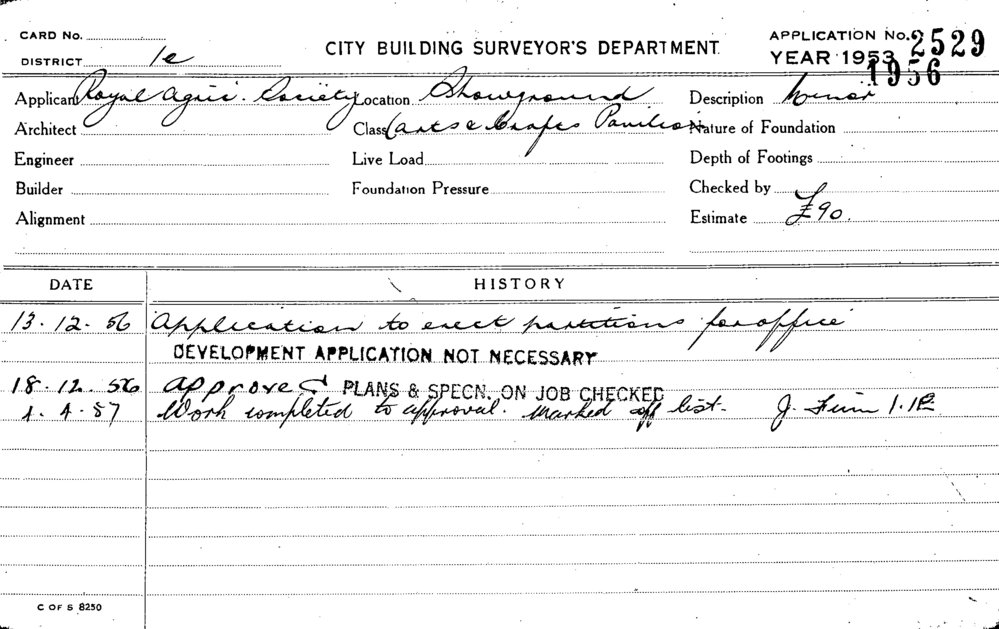 CARD No.
DISTRICT 1e
CITY BUILDING SURVEYOR'S DEPARTMENT
APPLICATION No. 2529
YEAR 1953 1956
Applicant Royal Agric. Society Location Showground Description Minor
Architect Class (Arts & Crafts Pavilion Nature of Foundation
Engineer Live Load Depth of Footings
Builder Foundation Pressure Checked by
Alignment Estimate £90.
DATE HISTORY
13.12.56 Application to erect partitions for office
DEVELOPMENT APPLICATION NOT NECESSARY
18.12.56 Approved PLANS & SPECN. ON JOB CHECKED
4.57 Work completed to approval. Marked off list. J.
C OF S 8250